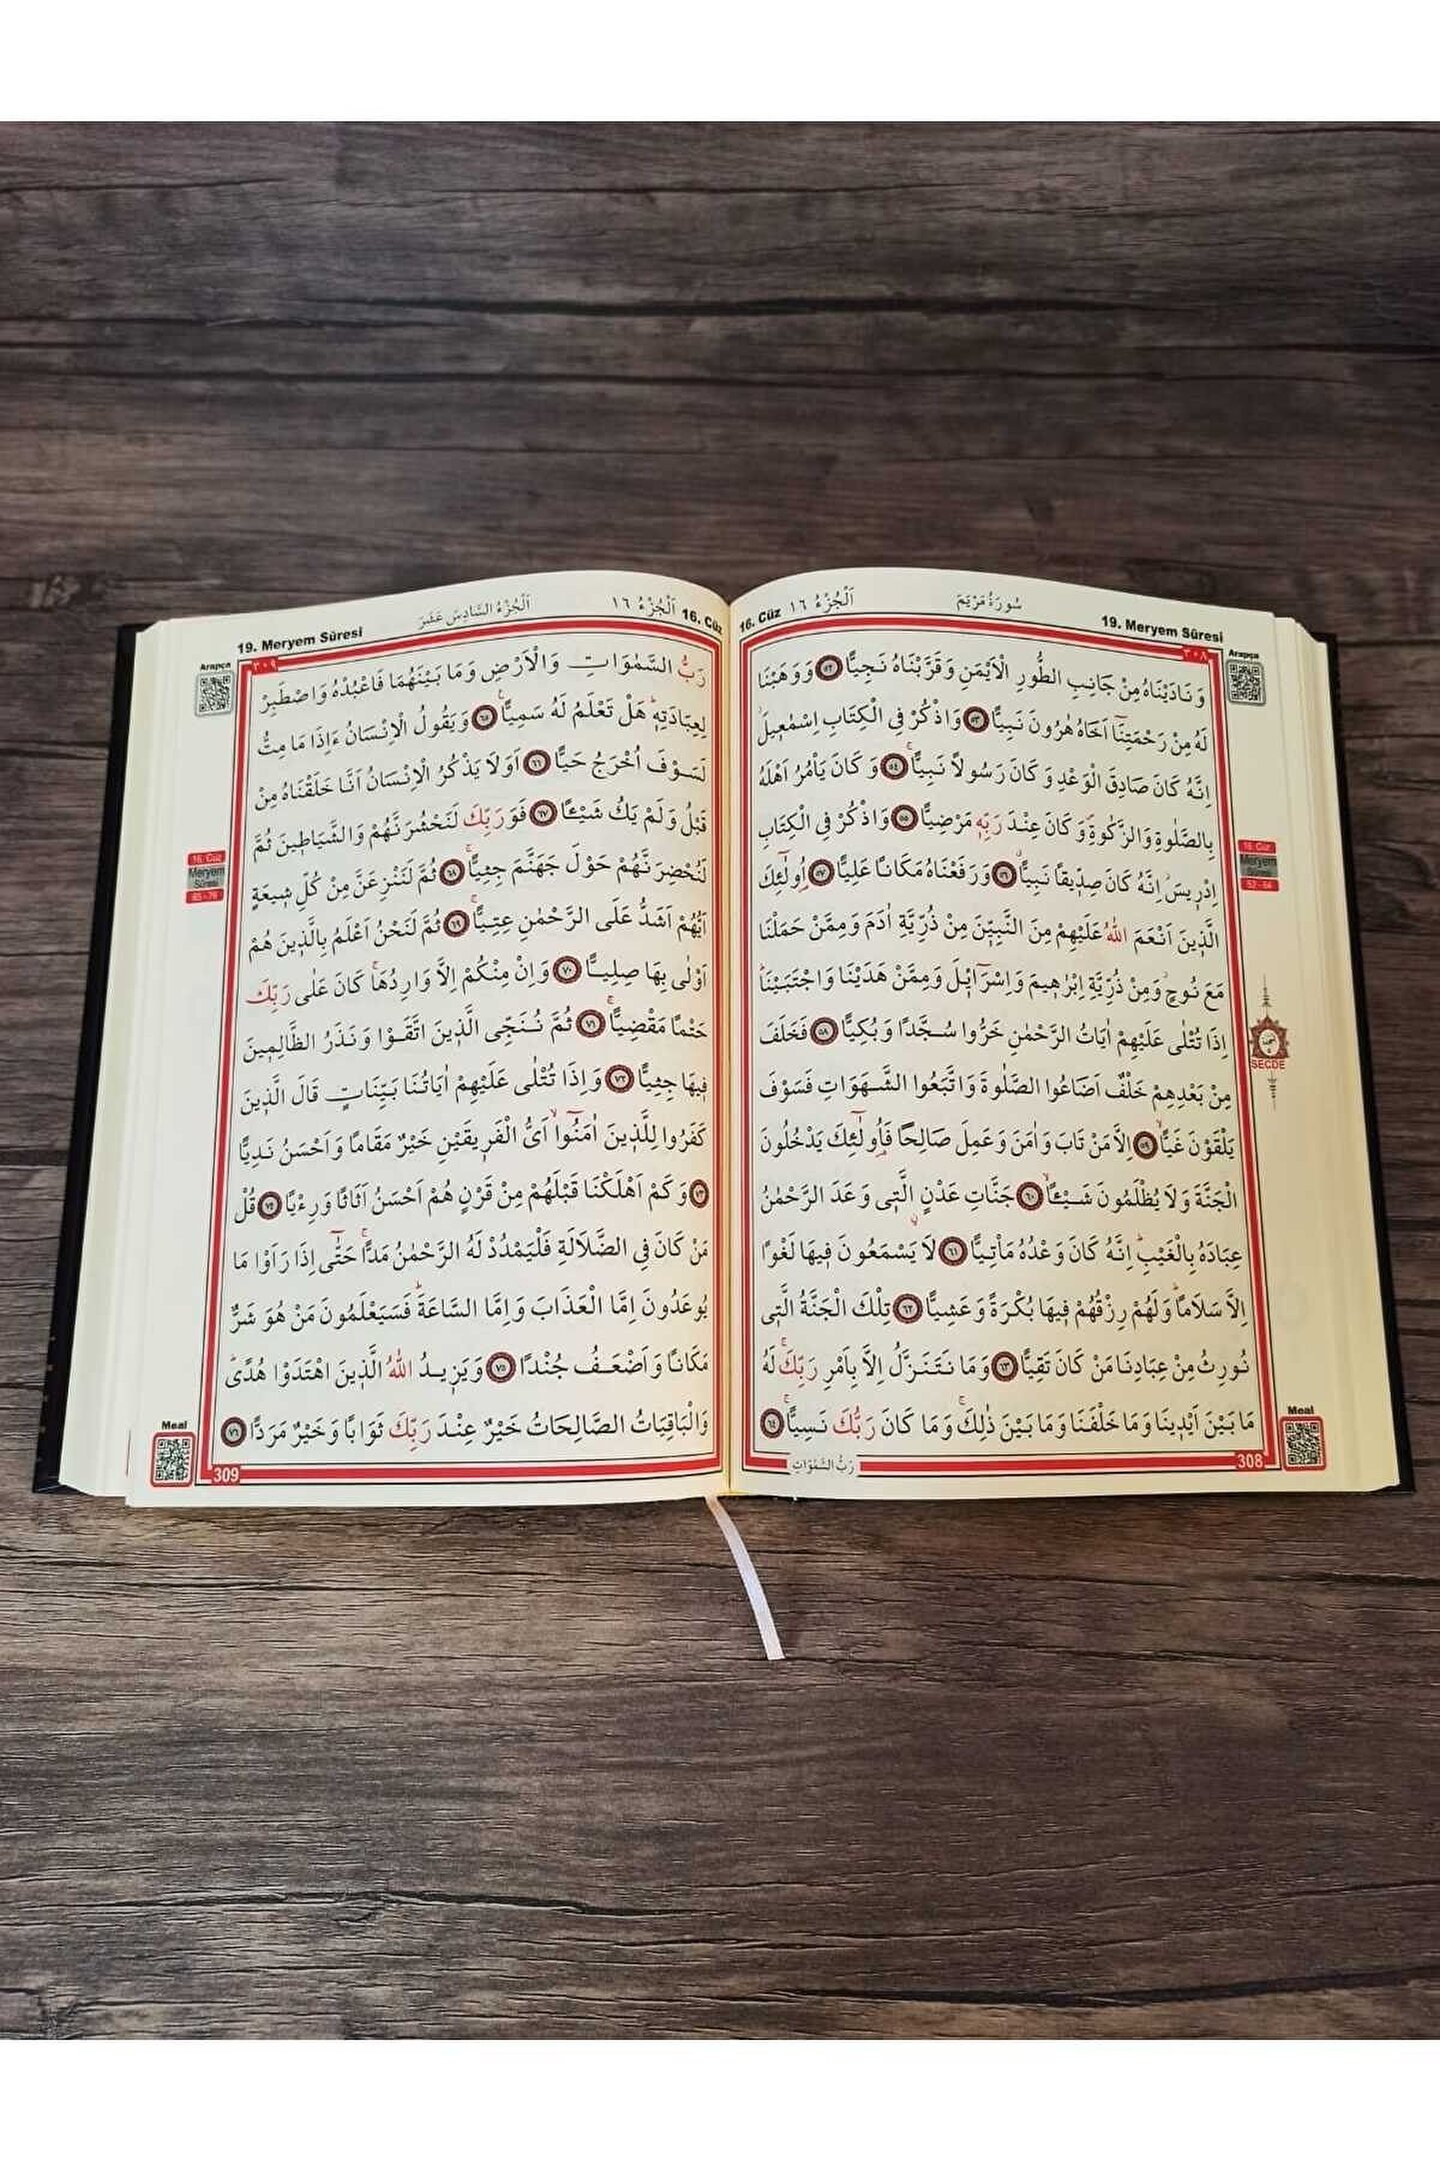 19. Meryem Sûresi
سُورَةُ مَرْيَمَ
اَلْجُزْءُ ١٦
16. Cüz
٣٠٨
Arapça
وَنَادَيْنَاهُ مِنْ جَانِبِ الطُّورِ الْاَيْمَنِ وَقَرَّبْنَاهُ نَجِيًّا ٥٢ وَوَهَبْنَا
لَهُ مِنْ رَحْمَتِنَٓا اَخَاهُ هٰرُونَ نَبِيًّا ٥٣ وَاذْكُرْ فِي الْكِتَابِ اِسْمٰعٖيلَۘ
اِنَّهُ كَانَ صَادِقَ الْوَعْدِ وَكَانَ رَسُولًا نَبِيًّاۚ ٥٤ وَكَانَ يَأْمُرُ اَهْلَهُ
بِالصَّلٰوةِ وَالزَّكٰوةِۖ وَكَانَ عِنْدَ رَبِّهٖ مَرْضِيًّا ٥٥ وَاذْكُرْ فِي الْكِتَابِ
اِدْرٖيسَۘ اِنَّهُ كَانَ صِدّٖيقًا نَبِيًّاۗ ٥٦ وَرَفَعْنَاهُ مَكَانًا عَلِيًّا ٥٧ اُو۬لٰٓئِكَ
الَّذٖينَ اَنْعَمَ اللّٰهُ عَلَيْهِمْ مِنَ النَّبِيّٖنَ مِنْ ذُرِّيَّةِ اٰدَمَ وَمِمَّنْ حَمَلْنَا
مَعَ نُوحٍۘ وَمِنْ ذُرِّيَّةِ اِبْرٰهٖيمَ وَاِسْرَٓائٖلَ وَمِمَّنْ هَدَيْنَا وَاجْتَبَيْنَاۜ
اِذَا تُتْلٰى عَلَيْهِمْ اٰيَاتُ الرَّحْمٰنِ خَرُّوا سُجَّدًا وَبُكِيًّا ٥٨ فَخَلَفَ
مِنْ بَعْدِهِمْ خَلْفٌ اَضَاعُوا الصَّلٰوةَ وَاتَّبَعُوا الشَّهَوَاتِ فَسَوْفَ
يَلْقَوْنَ غَيًّاۙ ٥٩ اِلَّا مَنْ تَابَ وَاٰمَنَ وَعَمِلَ صَالِحًا فَاُو۬لٰٓئِكَ يَدْخُلُونَ
الْجَنَّةَ وَلَا يُظْلَمُونَ شَيْـًٔاۙ ٦٠ جَنَّاتِ عَدْنٍ الَّتٖي وَعَدَ الرَّحْمٰنُ
عِبَادَهُ بِالْغَيْبِۜ اِنَّهُ كَانَ وَعْدُهُ مَأْتِيًّا ٦١ لَا يَسْمَعُونَ فٖيهَا لَغْوًا
اِلَّا سَلَامًاۜ وَلَهُمْ رِزْقُهُمْ فٖيهَا بُكْرَةً وَعَشِيًّا ٦٢ تِلْكَ الْجَنَّةُ الَّتٖي
نُورِثُ مِنْ عِبَادِنَا مَنْ كَانَ تَقِيًّا ٦٣ وَمَا نَتَنَزَّلُ اِلَّا بِاَمْرِ رَبِّكَۚ لَهُ
مَا بَيْنَ اَيْدٖينَا وَمَا خَلْفَنَا وَمَا بَيْنَ ذٰلِكَۚ وَمَا كَانَ رَبُّكَ نَسِيًّاۚ ٦٤
رَبُّ السَّمٰوَاتِ
308
16. Cüz
Meryem
Sûresi
52 - 64
SECDE
Meal
16. Cüz
اَلْجُزْءُ ١٦
اَلْجُزْءُ السَّادِسَ عَشَرَ
19. Meryem Sûresi
٣٠٩
Arapça
رَبُّ السَّمٰوَاتِ وَالْاَرْضِ وَمَا بَيْنَهُمَا فَاعْبُدْهُ وَاصْطَبِرْ
لِعِبَادَتِهٖۜ هَلْ تَعْلَمُ لَهُ سَمِيًّاۚ ٦٥ وَيَقُولُ الْاِنْسَانُ ءَاِذَا مَا مِتُّ
لَسَوْفَ اُخْرَجُ حَيًّا ٦٦ اَوَلَا يَذْكُرُ الْاِنْسَانُ اَنَّا خَلَقْنَاهُ مِنْ
قَبْلُ وَلَمْ يَكُ شَيْـًٔا ٦٧ فَوَرَبِّكَ لَنَحْشُرَنَّهُمْ وَالشَّيَاطٖينَ ثُمَّ
لَنُحْضِرَنَّهُمْ حَوْلَ جَهَنَّمَ جِثِيًّاۚ ٦٨ ثُمَّ لَنَنْزِعَنَّ مِنْ كُلِّ شٖيعَةٍ
اَيُّهُمْ اَشَدُّ عَلَى الرَّحْمٰنِ عِتِيًّاۚ ٦٩ ثُمَّ لَنَحْنُ اَعْلَمُ بِالَّذٖينَ هُمْ
اَوْلٰى بِهَا صِلِيًّا ٧٠ وَاِنْ مِنْكُمْ اِلَّا وَارِدُهَاۚ كَانَ عَلٰى رَبِّكَ
حَتْمًا مَقْضِيًّاۚ ٧١ ثُمَّ نُنَجِّي الَّذٖينَ اتَّقَوْا وَنَذَرُ الظَّالِمٖينَ
فٖيهَا جِثِيًّا ٧٢ وَاِذَا تُتْلٰى عَلَيْهِمْ اٰيَاتُنَا بَيِّنَاتٍ قَالَ الَّذٖينَ
كَفَرُوا لِلَّذٖينَ اٰمَنُٓواۙ اَيُّ الْفَرٖيقَيْنِ خَيْرٌ مَقَامًا وَاَحْسَنُ نَدِيًّا
٧٣ وَكَمْ اَهْلَكْنَا قَبْلَهُمْ مِنْ قَرْنٍ هُمْ اَحْسَنُ اَثَاثًا وَرِءْيًا ٧٤ قُلْ
مَنْ كَانَ فِي الضَّلَالَةِ فَلْيَمْدُدْ لَهُ الرَّحْمٰنُ مَدًّاۚ حَتّٰٓى اِذَا رَاَوْا مَا
يُوعَدُونَ اِمَّا الْعَذَابَ وَاِمَّا السَّاعَةَۜ فَسَيَعْلَمُونَ مَنْ هُوَ شَرٌّ
مَكَانًا وَاَضْعَفُ جُنْدًا ٧٥ وَيَزٖيدُ اللّٰهُ الَّذٖينَ اهْتَدَوْا هُدًىۜ
وَالْبَاقِيَاتُ الصَّالِحَاتُ خَيْرٌ عِنْدَ رَبِّكَ ثَوَابًا وَخَيْرٌ مَرَدًّا ٧٦
309
16. Cüz
Meryem
Sûresi
65 - 76
Meal